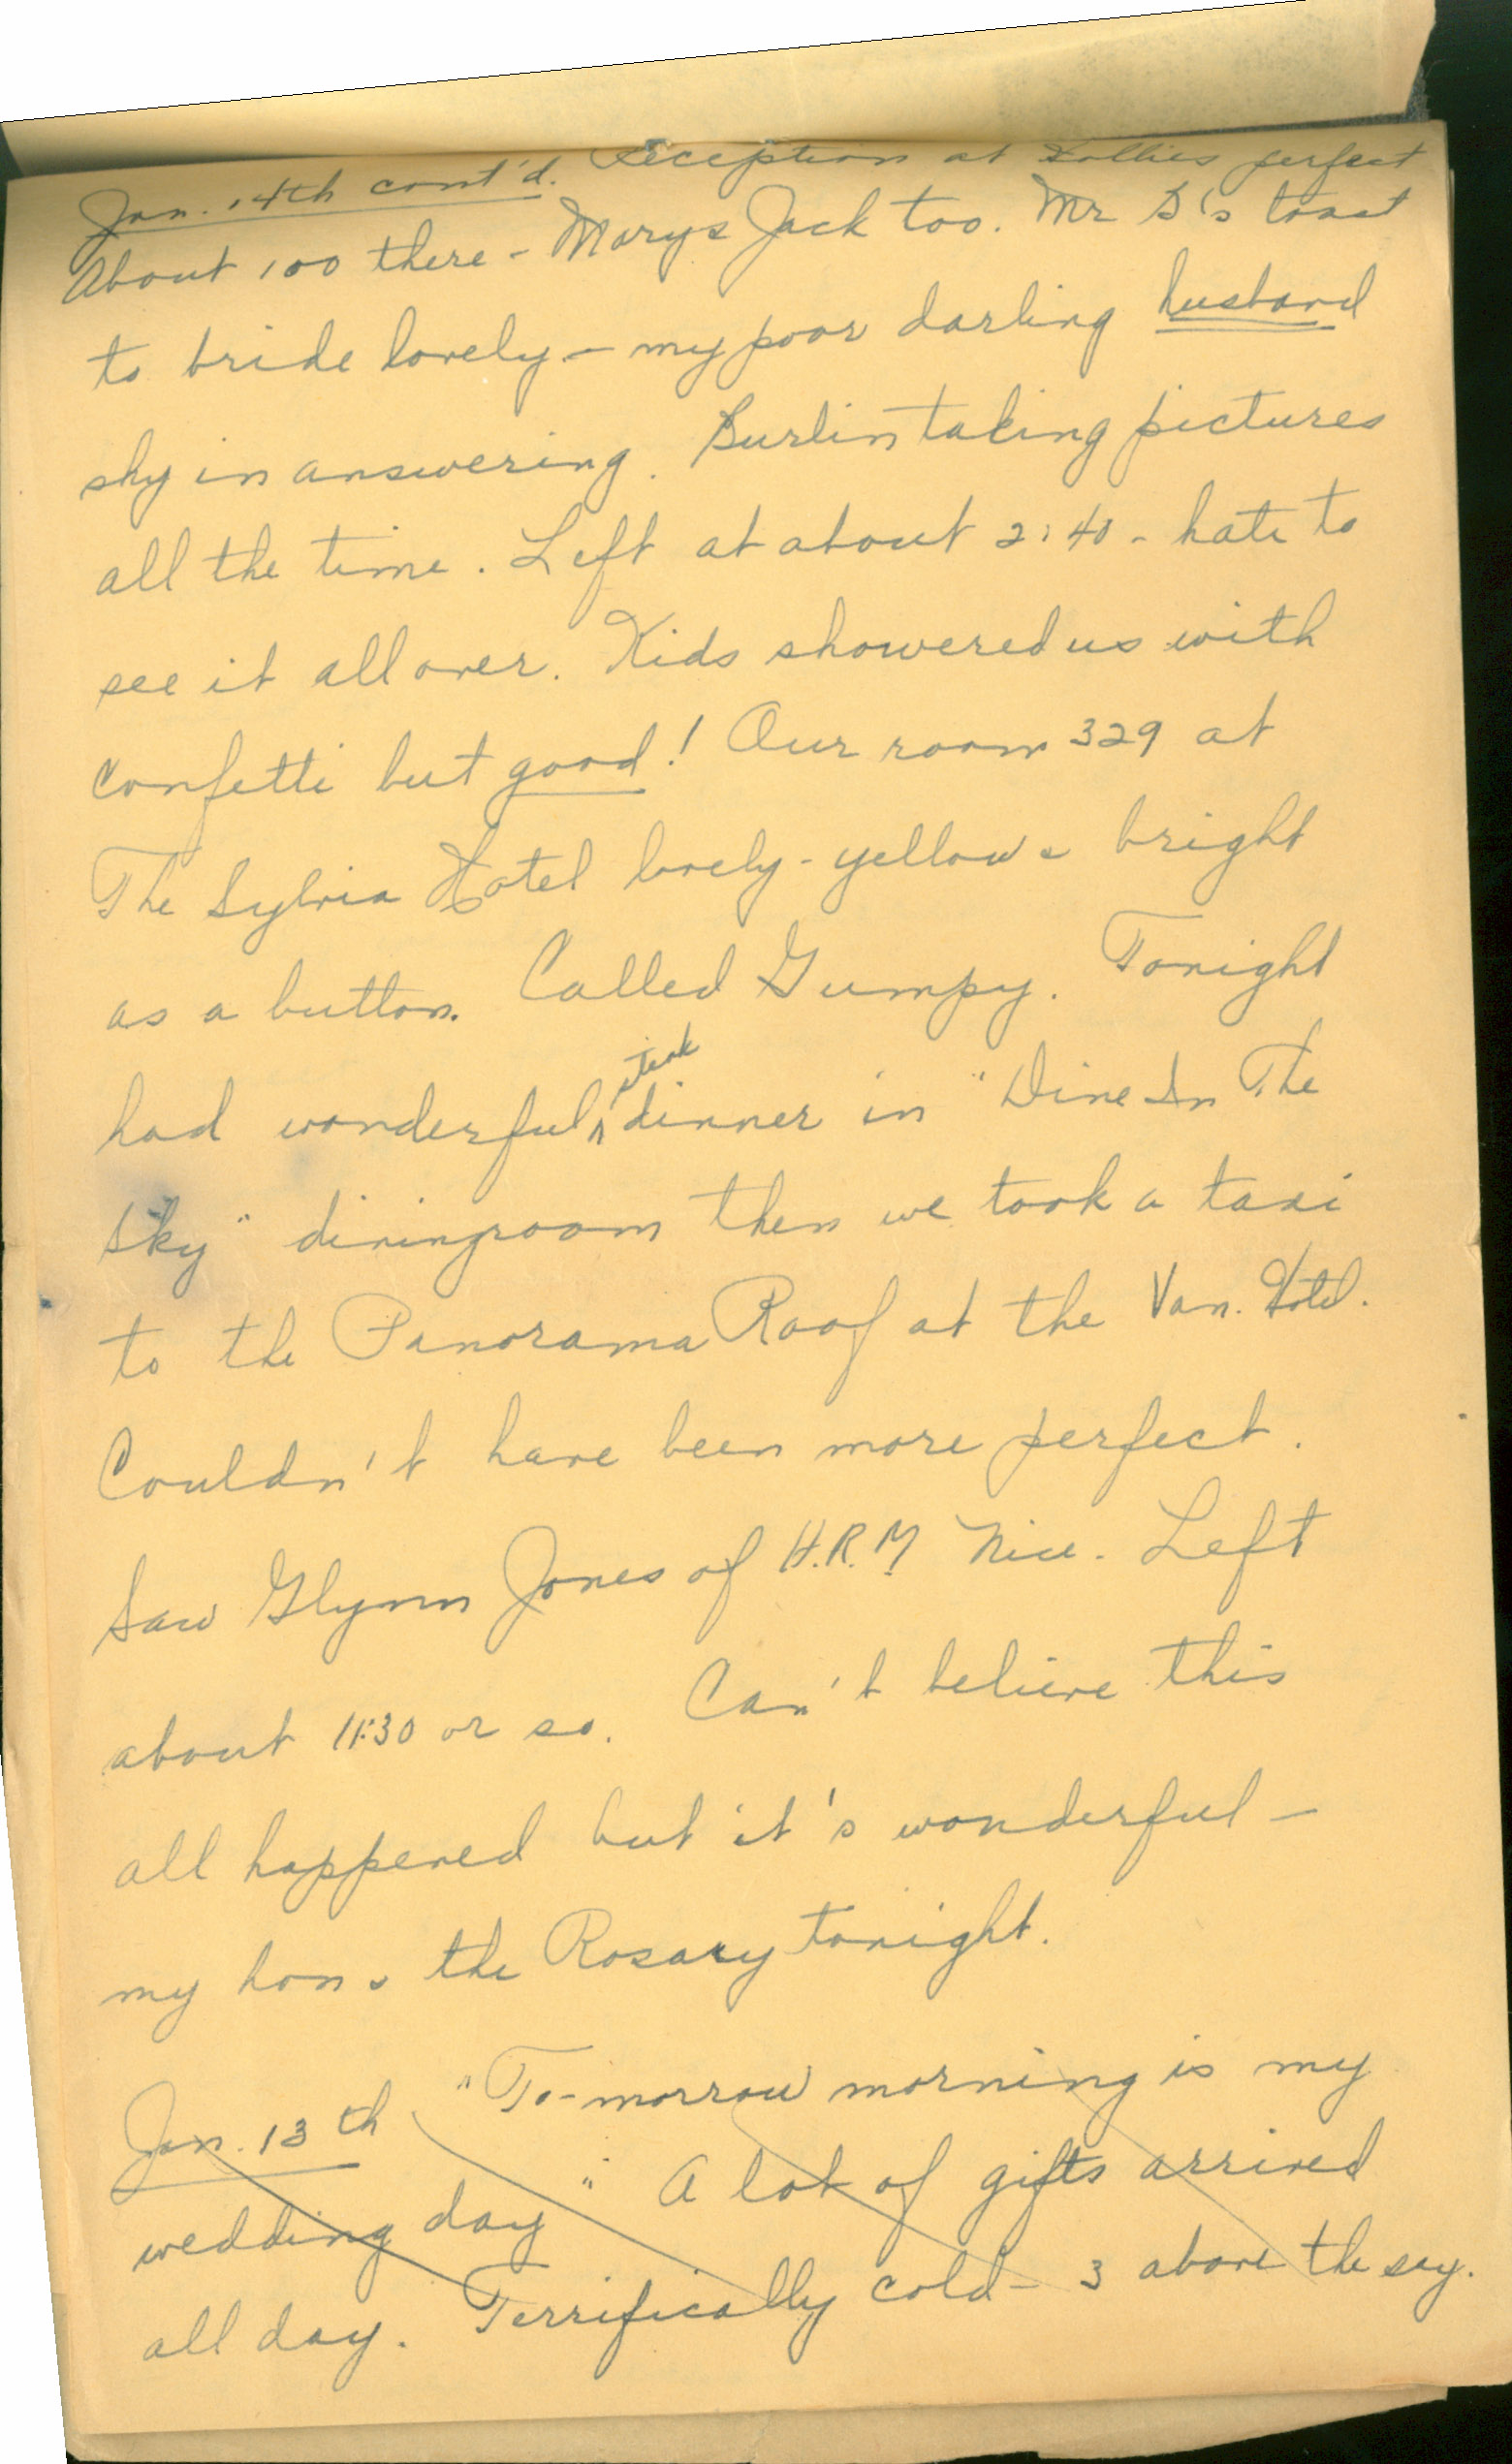 Jan. 14th cont'd. Reception at Hollies perfect
About 100 there - Marys Jack too. Mr B's toast
to bride lovely - my poor darling husband
shy in answering. Burlin taking pictures
all the time. Left at about 2:40 - hate to
see it all over. Kids showered us with
confetti but good! Our room 329 at
The Sylvia Hotel lovely - yellow & bright
as a button. Called Gumpy. Tonight
had wonderful steak dinner in "Dine In The
Sky" diningroom then we took a taxi
to the Panorama Roof at the Van. Hotel.
Couldn't have been more perfect.
Saw Glynn Jones of H.R.M Nice. Left
about 11:30 or so. Can't believe this
all happened but it's wonderful -
my hon & the Rosary tonight.
Jan. 13th "To-morrow morning is my
wedding day" A lot of gifts arrived
all day. Terrifically cold - 3 above they say.